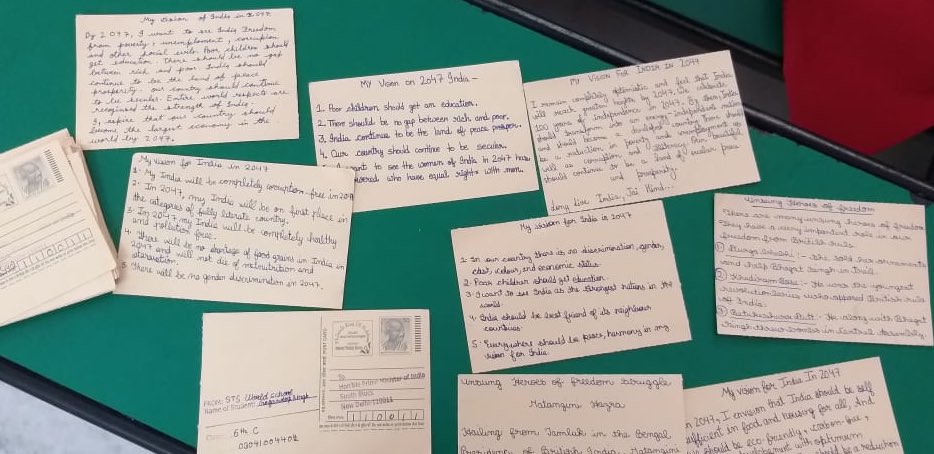 My vision of India in 2047
By 2047, I want to see India freedom
from poverty, unemploment, corruption
and other social evils. Poor children should
get education. There should be no gap
between rich and poor. India should
continue to be the land of peace
prosperity. our country should continue
to be secular. Entire world respects and
recognised the strength of India.
I, aspire that our country should
become the largest economy in the
world by 2047.
My Vision on 2047 India -
1. Poor children should get an education.
2. There should be no gap between rich and poor.
3. India continue to be the land of peace prosper.
4. Our country should continue to be secular.
want to see the women of India in 2047 have
who have equal rights with men.
My Vision For INDIA IN 2047
I remain completely optimistic and feel that India
will reach greater heights by 2047. We celebrate
100 years of independence in 2047. By then, India
should transform into an energy independent nation
and should become a developed country. There should
be a reduction in poverty and unemployment as
well as corruption and illiteracy. Our beautiful
should continue to be a land of secular peace
and prosperity.
Long live India, Jai Hind...
My vision for India in 2047
1. My India will be completely corruption-free in 2047
2. In 2047, my India will be on first place in
the categories of fully literate country.
3. In 2047, my India will be completely healthy
and pollution free.
4. There will be no shortage of food grains in India in
2047 and will not die of malnutrition and
starvation.
5. There will be no gender discrimination in 2047.
My vision for India in 2047
1. In our country there is no discrimination, gender,
cast, colour, and economic status.
2. Poor children should get education.
3. I want to see India as the strongest nations in the
world.
4. India should be best friend of its neighbour
countries.
5. Everywhere should be peace, harmony in my
vision for India.
Unsung Heroes of freedom
There are many unsung heroes of freedom
They have a very important role in our
freedom from British rule.
1) Durga :- She sold her ornaments
and help Bhagat Singh in Trail.
2) Khudiram Bose :- He was the youngest
revolutionaries who opposed British rule
of India.
3) Batukeshwara Dutt :- He along with Bhagat
Singh threw bombs in Central Assembly
FROM: STS World school
Name of Student:
6th C
03091004402
To
Hon'ble Prime Minister of India
South Block
New Delhi-110011
110011
Unsung Heroes of freedom struggle
Matangini Hazra
Hailing from Tamluk in the Bengal
Presidency of British India, Matangini
My vision for India In 2047
In 2047, I envision that India should be self
sufficient in food and housing for all, And
should be eco-friendly, carbon free,
with optimum
should be a reduction